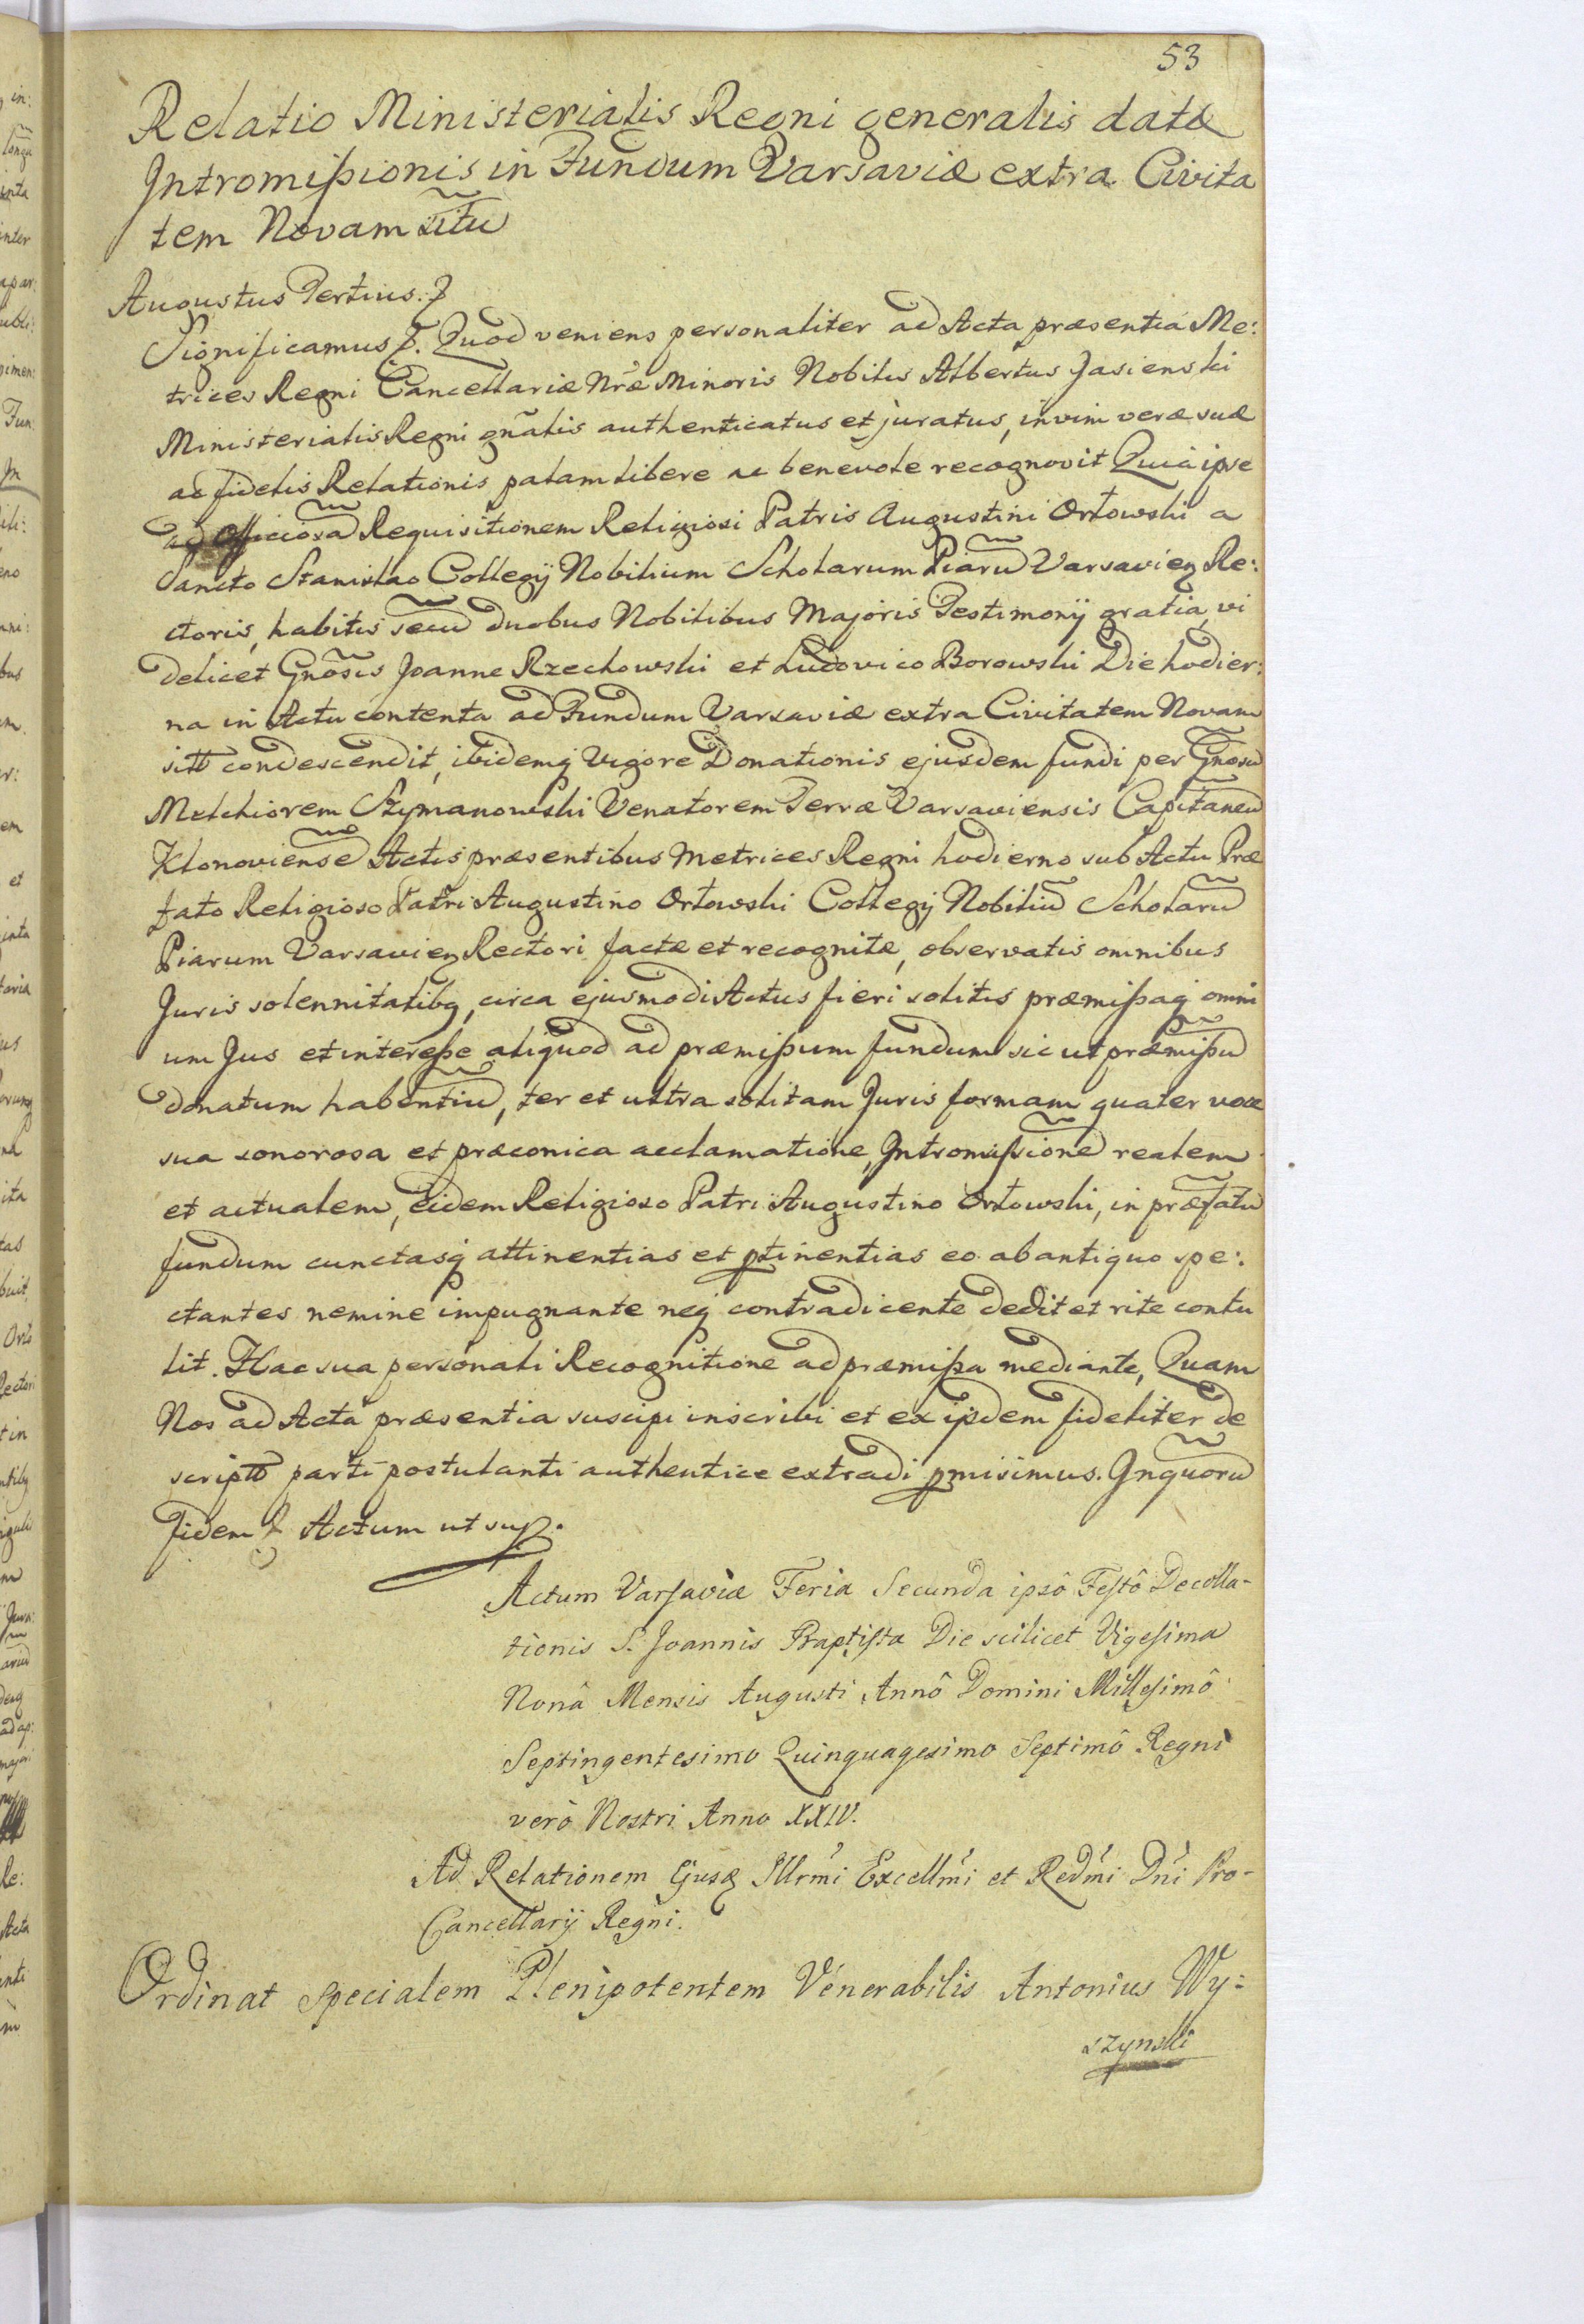 53
Relatio Ministerialis Regni generalis datæ
Intromissionis in Fundum Varsaviæ extra Civita
tem Novam sitũ
Augustus Tertius.
Significamus. Quod veniens personaliter ad Acta præsentia Me:
trices Regni Cancellariæ Nræ Minoris Nobilis Albertus Jasienski
Ministerialis Regni gñalis authenticatus et juratus, in vim veræ suæ
ac fidelis Relationis palam libere ac benevole recognovit Quia ipse
ad officiosã Requisitionem Religiosi Patris Augustini Orłowski a
Sancto Stanislao Collegij Nobilium Scholarum Piarũ Varsavien Re:
ctoris, habitis secũ duobus Nobilibus Majoris Testimonij gratia, vi
delicet Gnosis Joanne Rzechowski et Ludovico Borowski Die hodier:
na in Actu contenta ad Fundum Varsaviæ extra Civitatem Novam
sitũ condescendit, ibidemq Vigore Donationis ejusdem fundi per Gnosũ
Melchiorem Szymanowski Venatorem Terræ Varsaviensis Capitaneũ
Klonoviensẽ Actis præsentibus Metrices Regni hodierno sub Actu Præ
fato Religioso Patri Augustino Orłowski Collegij Nobiliũ Scholarũ
Piarum Varsavien Rectori factæ et recognitæ, observatis omnibus
Juris solennitatibq, circa ejusmodi Actus fieri solitis præmissaq omni
um Jus et interesse aliquod ad præmissum fundum sic ut præmissũ
donatum habentiũ, ter et ultra solitam Juris formam quater voce
sua sonorosa et præconica acclamatione, Intromissionẽ realem
et actualem, eidem Religioso Patri Augustino Orłowski, in præfatũ
fundum cunctasq attinentias et ptinentias eo ab antiquo spe:
ctantes nemine impugnante neq contradicente dedit et rite contu
lit. Hac sua personali Recognitione ad præmissa mediante, Quam
Nos ad Acta præsentia suscipi inscribi et ex ijsdem fideliter de
scriptũ parti postulanti authentice extradi pmisimus. In quorũ
fidem Actum ut sup.
Actum Varsaviæ Feria Secunda ipsô Festô Decolla-
tionis S. Joannis Baptista Die scilicet Vigesima
Nonâ Mensis Augusti Annô Domini Millesimô
Septingentesimo Quinquagesimo Septimô Regni
verò Nostri Anno XXIV.
Ad Relationem Ejusq Illrmi Excellmi et Redmi Dni Pro-
Cancellarij Regni.
Ordinat specialem Plenipotentem Venerabilis Antonius Wy=
szynski